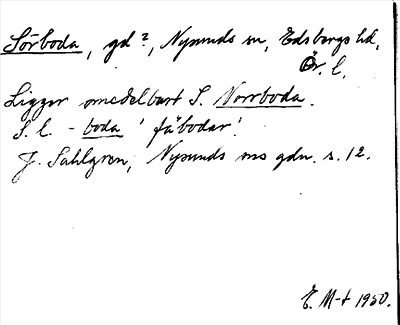 Sörboda, gd?, Nysunds sn, Edsbergs hd,
Ör. l.
Ligger omedelbart S. Norrboda.
S. l. -boda 'fäbodar'.
J. Sahlgren, Nysunds sns gdn. s. 12.
E. M-t 1950.